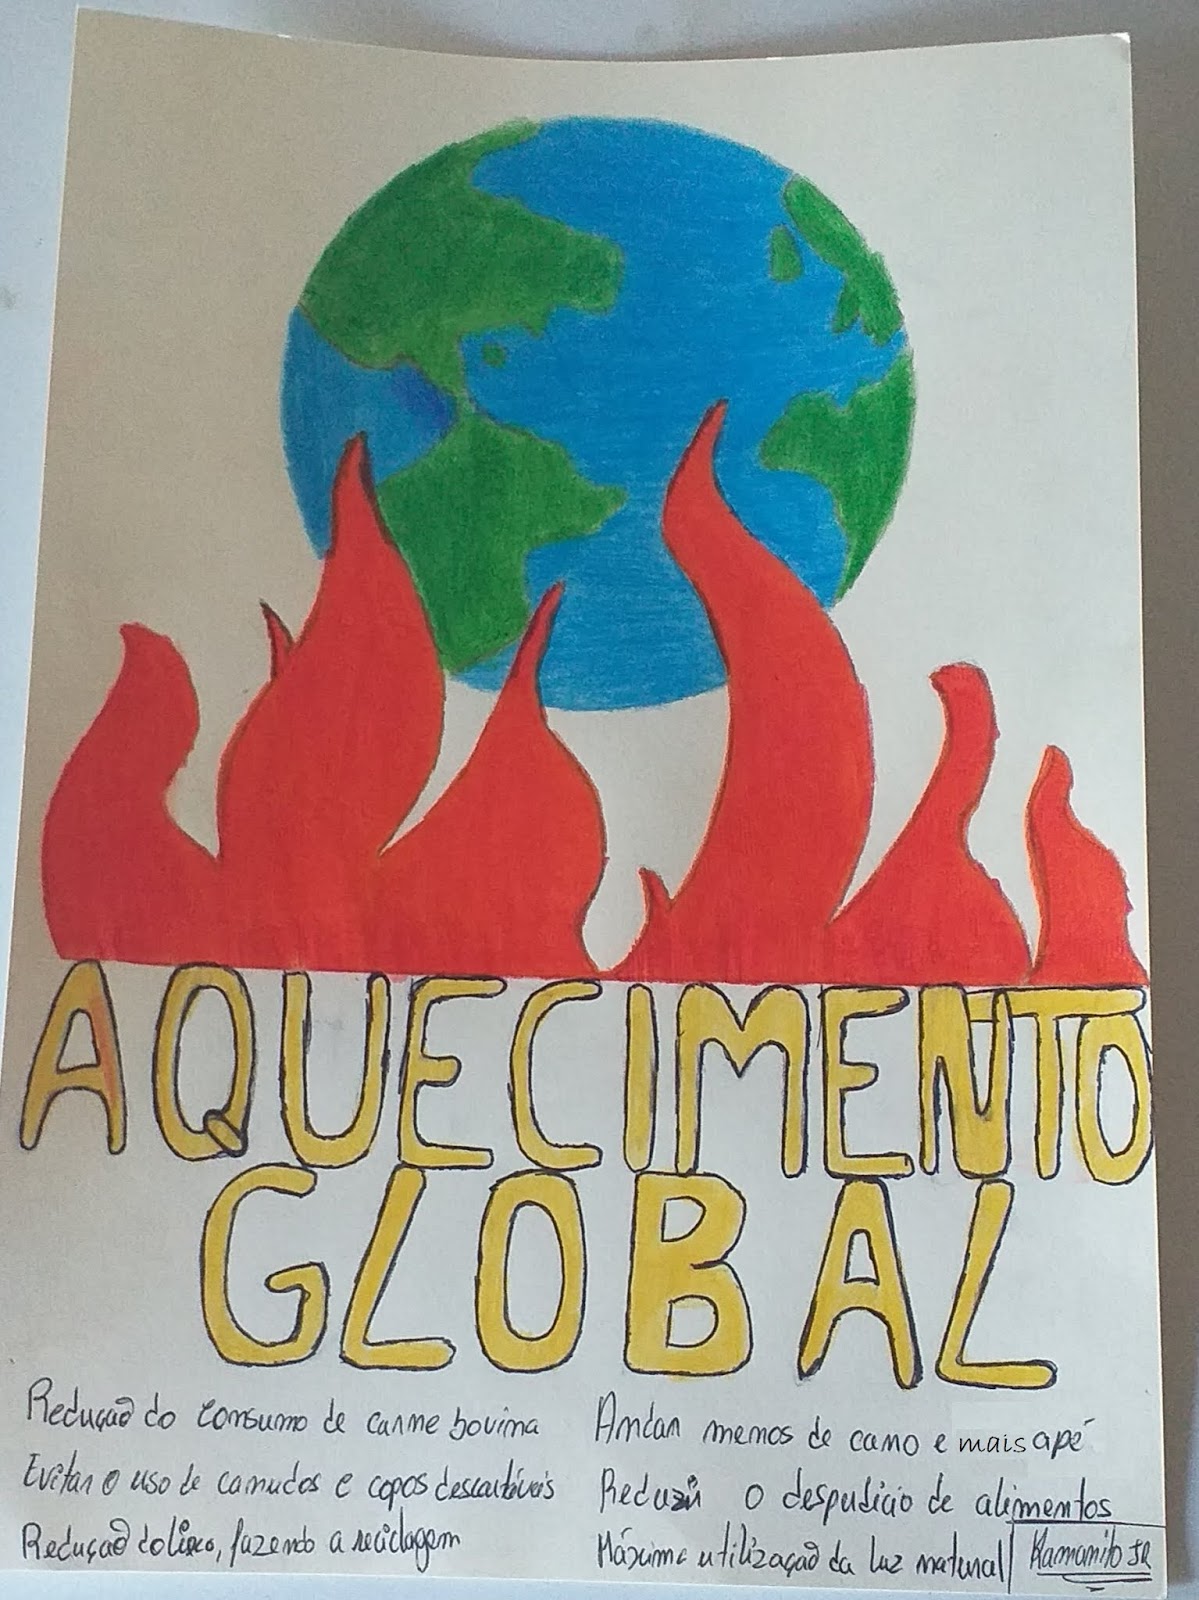 AQUECIMENTO
GLOBAL
Redução do consumo de carne bovina
Evitar o uso de canudos e copos descartáveis
Redução do lixo, fazendo a reciclagem
Andar menos de carro e mais apé
Reduzir o despudicio de alimentos
Máxima utilização da luz natural
Kamanito JR